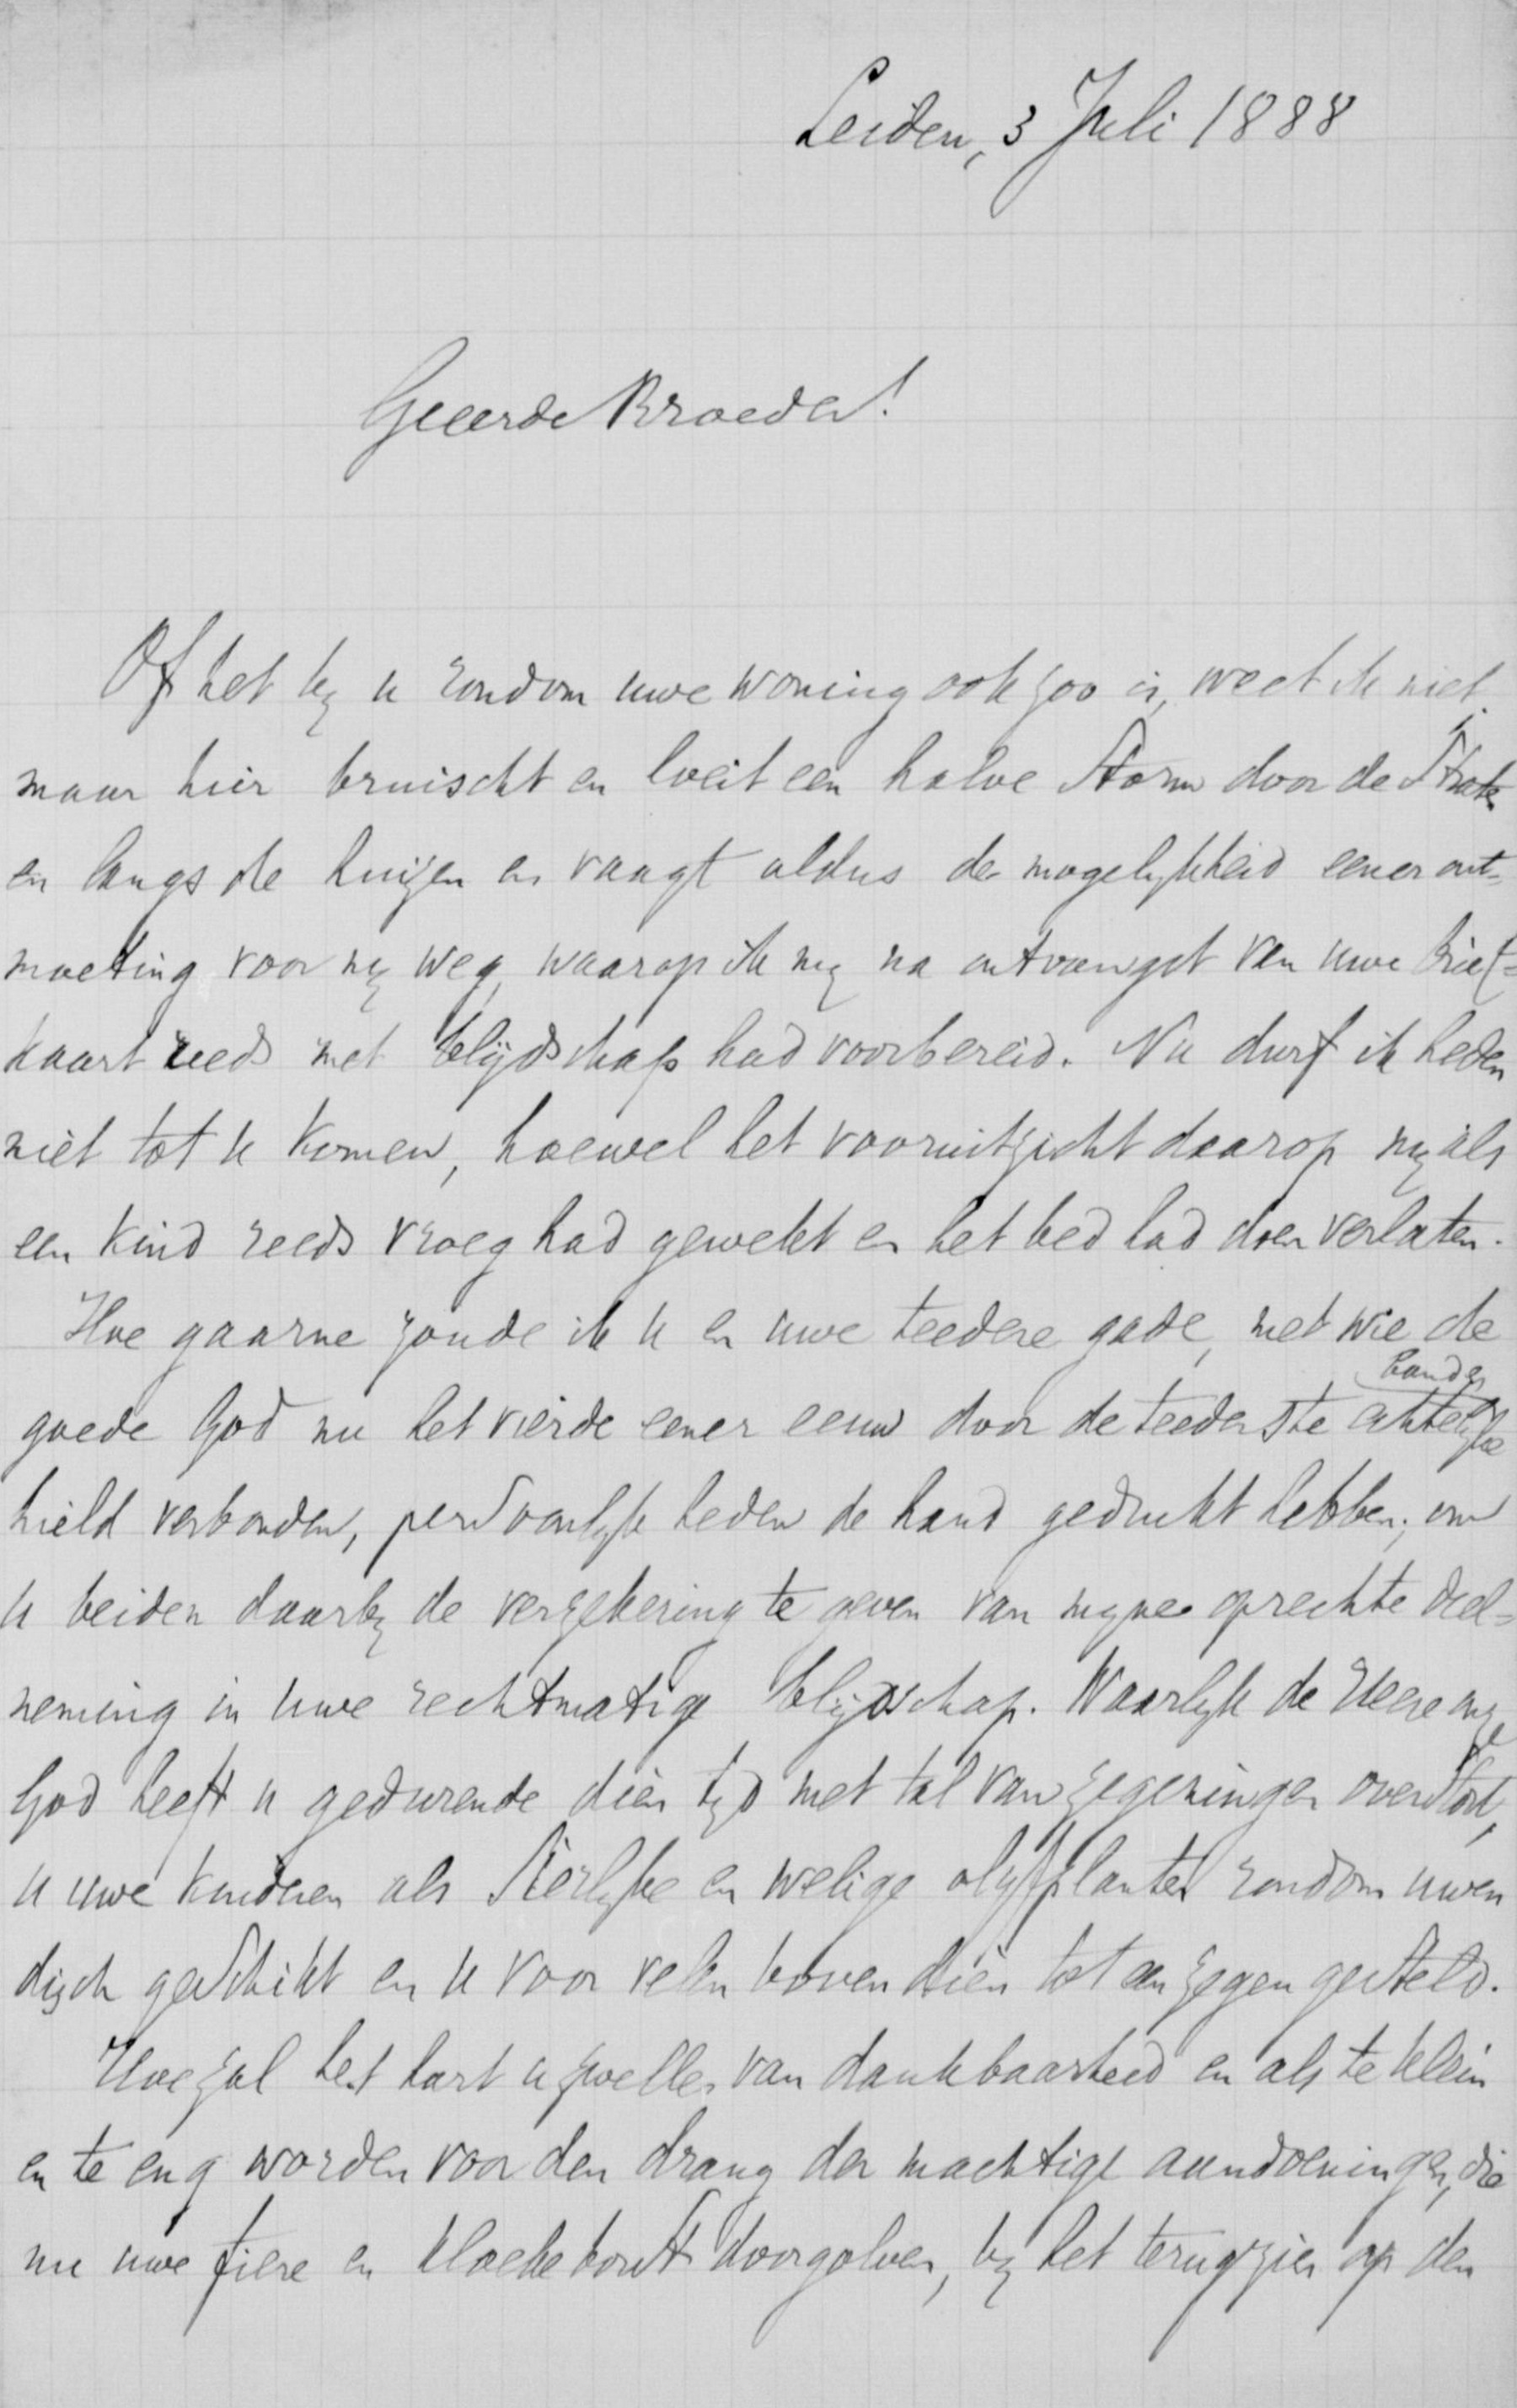 Leiden, 3 Juli 1888
Geeerde Broeder!
Of het bij u rondom uwe woning ook zoo is, weet ik niet,
maar hier bruischt en loeit een halve storm door de straten
en langs de huizen en vaagt aldus de mogelijkheid eener ont-
moeting voor mij weg, waarop ik mij na ontvangst van uwe brief-
kaart reeds met blijdschap had voorbereid. Nu durf ik heden
niet tot u komen, hoewel het vooruitzicht daarop mij als
een kind reeds vroeg had gewekt en het bed had doen verlaten.
Hoe gaarne zoude ik u en uwe teedere gade, met wie de
banden
goede God nu het vierde eener eeuw door de teederste echtelijke
hield verbonden, persoonlijk heden de hand gedrukt hebben, om
u beiden daarbij de verzekering te geven van mijne oprechte deel-
neming in uwe rechtmatige blijdschap. Waarlijk de Heere onze
God heeft u gedurende dien tijd met tal van zegeningen overstort,
u uwe kinderen als sierlijke en welige olijfplanten rondom uwen
disch geschikt en u voor velen bovendien tot een zegen gesteld.
Hoe zal het hart u zwellen van dankbaarheid en als te klein
en te eng worden voor den drang der machtige aandoeningen, die
nu uwe fiere en kloeke borst doorgolven, bij het terugzien op den